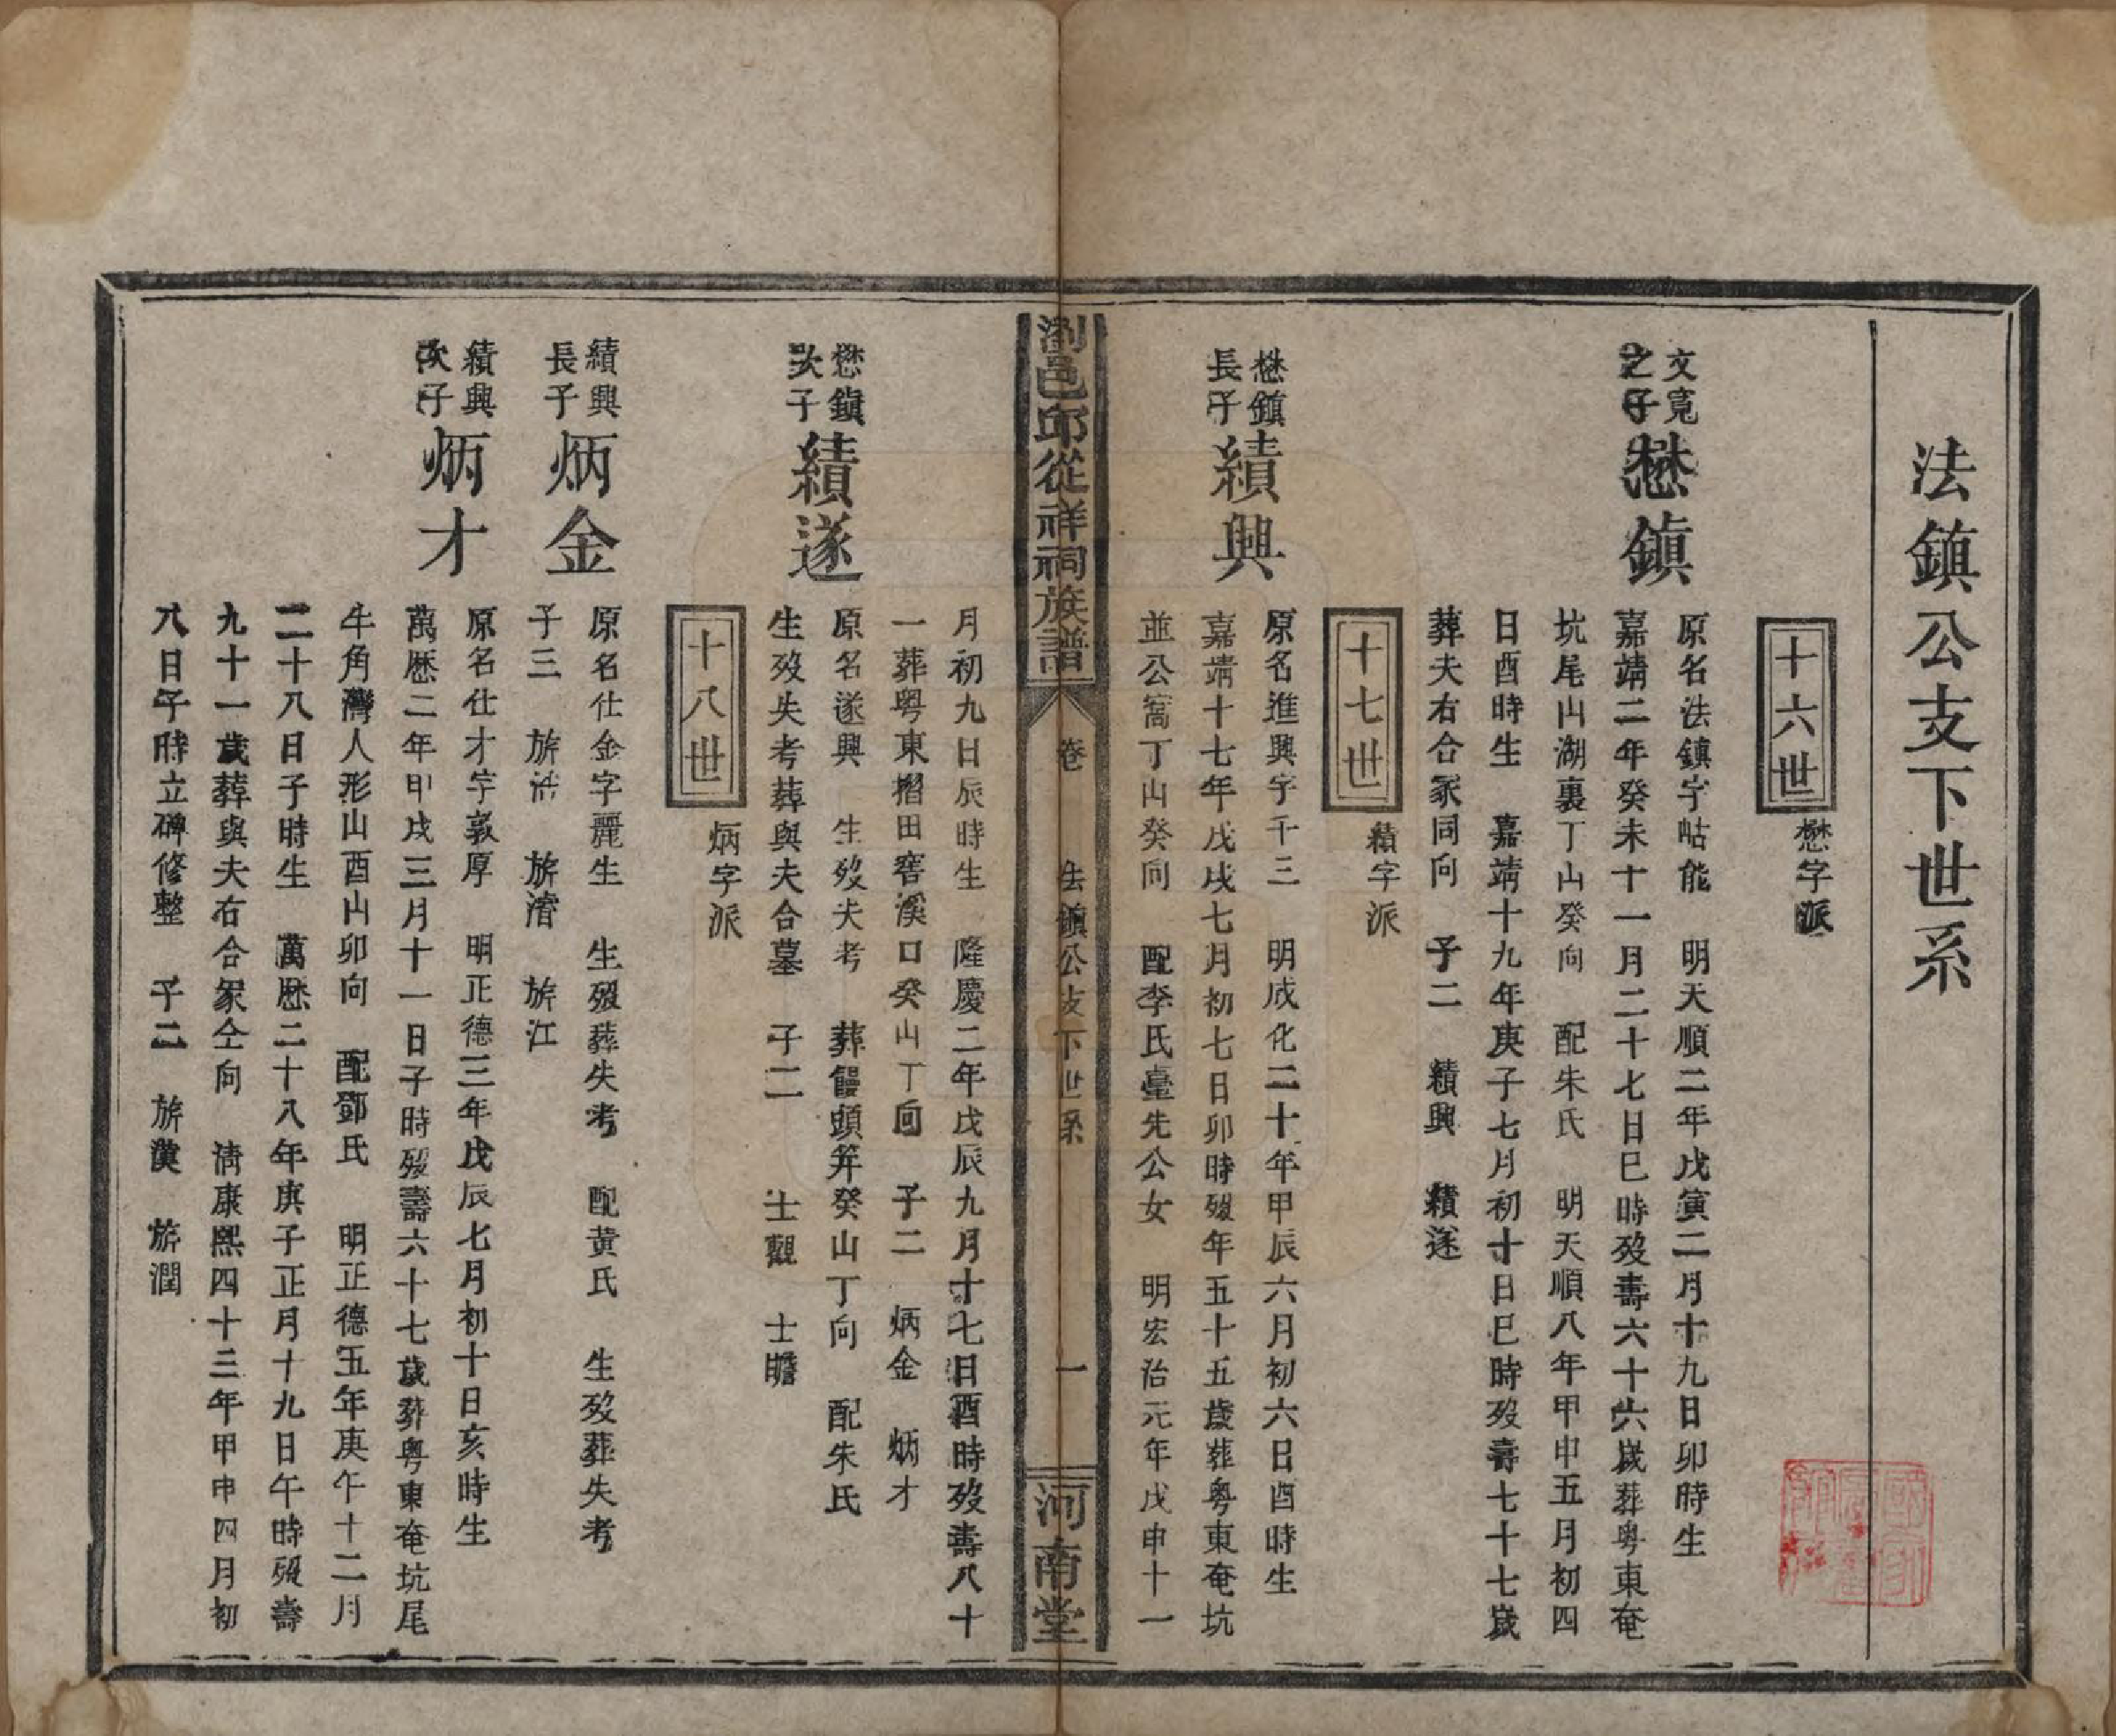 法鎮公支下世系
十六世
懋字派
文寬
之子
懋鎮
原名法鎮字岵能 明天順二年戊寅二月十九日卯時生
嘉靖二年癸未十一月二十七日巳時歿壽六十六歲葬粵東奄
坑尾山湖裏丁山癸向 配朱氏 明天順八年甲申五月初四
日酉時生 嘉靖十九年庚子七月初十日巳時歿壽七十七歲
葬夫右合冢同向 子二 績興 績遂
十七世
績字派
懋鎮
長子
績興
原名進興字千三 明成化二十年甲辰六月初六日酉時生
嘉靖十七年戊戌七月初七日卯時歿年五十五歲葬粵東奄坑
並公窩丁山癸向 配李氏臺先公女 明宏治元年戊申十一
瀏邑邱從祥祠族譜
卷
法鎮公支下世系
一
河南堂
月初九日辰時生 隆慶二年戊辰九月十七日酉時歿壽八十
一葬粵東摺田窖溪口癸山丁向 子二 炳金 炳才
懋鎮
次子
績遂
原名遂興 生歿失考 葬饅頭笄癸山丁向 配朱氏
生歿失考葬與夫合墓 子二 士觀 士瞻
十八世
炳字派
績興
長子
炳金
原名仕金字麗生 生歿葬失考 配黄氏 生歿葬失考
子三 旂浩 旂濳 旂江
績興
次子
炳才
原名仕才字敦厚 明正德三年戊辰七月初十日亥時生
萬歷二年甲戌三月十一日子時歿壽六十七歲葬粵東奄坑尾
牛角灣人形山酉山卯向 配鄧氏 明正德五年庚午十二月
二十八日子時生 萬歷二十八年庚子正月十九日午時歿壽
九十一歲葬與夫右合冢仝向 清康熙四十三年甲申四月初
八日午時立碑修整 子二 旂漢 旂潤